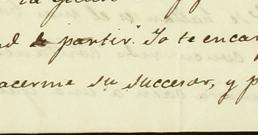 d de partir. Yo te encar
acerme su succesor, y p